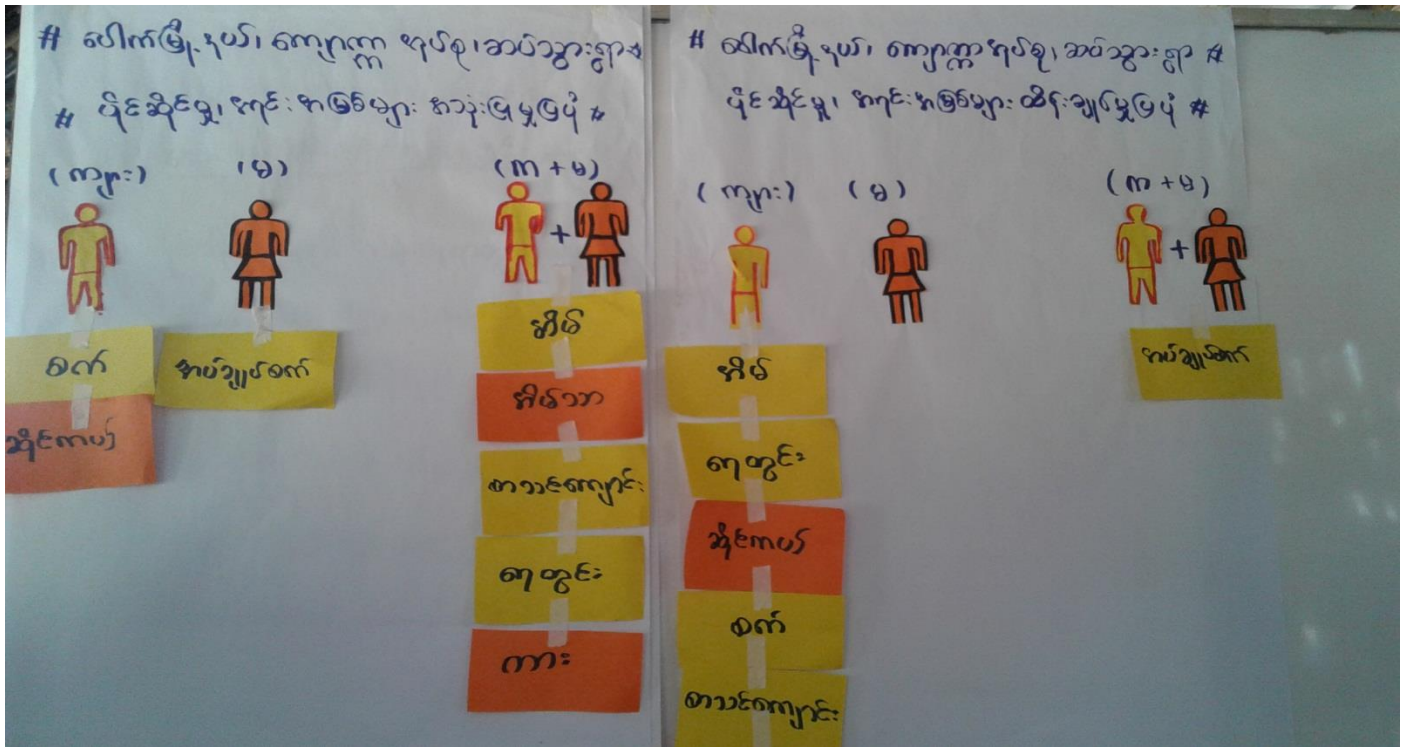 # ပေါက်မြို့နယ်၊ ကျောက္ကာ အုပ်စု၊ ဆပ်သွားရွာ #
# ပိုင်ဆိုင်မှု၊ အရင်းအမြစ်များ အသုံးပြုမှုပြပုံ #
(ကျား)
(မ)
(က + မ)
+
စက်
ဆိုင်ကယ်
အပ်ချုပ်စက်
အိမ်
အိမ်သာ
စာသင်ကျောင်း
ရေတွင်း
ကား
# ပေါက်မြို့နယ်၊ ကျောက္ကာအုပ်စု၊ ဆပ်သွားရွာ #
ပိုင်ဆိုင်မှု၊ အရင်းအမြစ်များ ထိန်းချုပ်မှုပြပုံ #
(ကျား)
(မ)
(က + မ)
+
အိမ်
ရေတွင်း
ဆိုင်ကယ်
စက်
စာသင်ကျောင်း
အပ်ချုပ်စက်